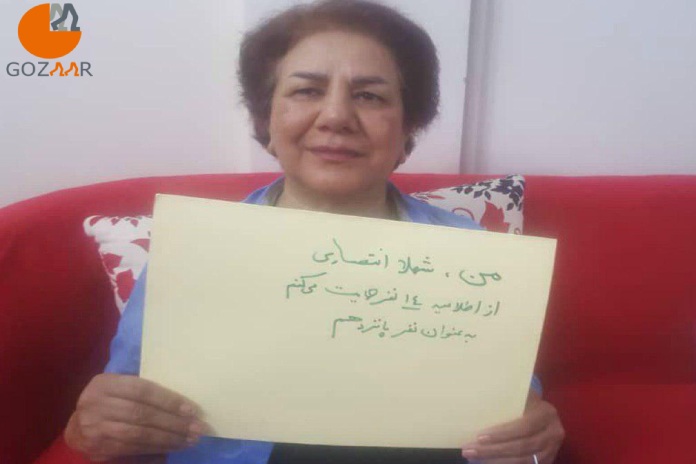 GOZAAR
من، شهلا انتصاری
از اطلاعیه ۱٤ نفر حمایت میکنم
به عنوان نفر پانزدهم